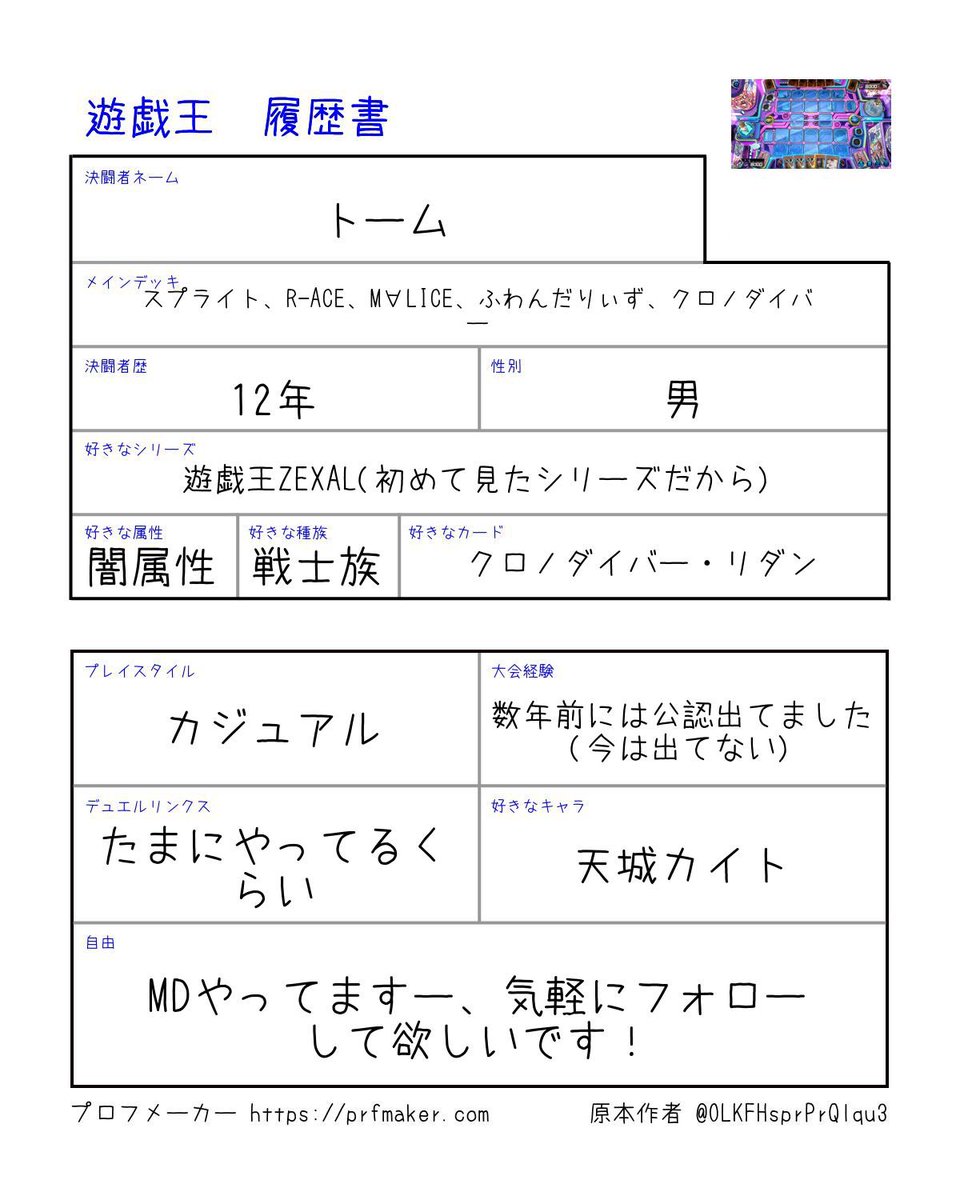 遊戯王　履歴書
決闘者ネーム
トーム
メインデッキ
スプライト、R-ACE、M∀LICE、ふわんだりぃず、クロノダイバ
ー
決闘者歴
12年
性別
男
好きなシリーズ
遊戯王ZEXAL(初めて見たシリーズだから)
好きな属性
闇属性
好きな種族
戦士族
好きなカード
クロノダイバー・リダン
プレイスタイル
カジュアル
大会経験
数年前には公認出てました
(今は出てない)
デュエルリンクス
たまにやってるく
らい
好きなキャラ
天城カイト
自由
MDやってますー、気軽にフォロー
して欲しいです！
プロフメーカー https://prfmaker.com